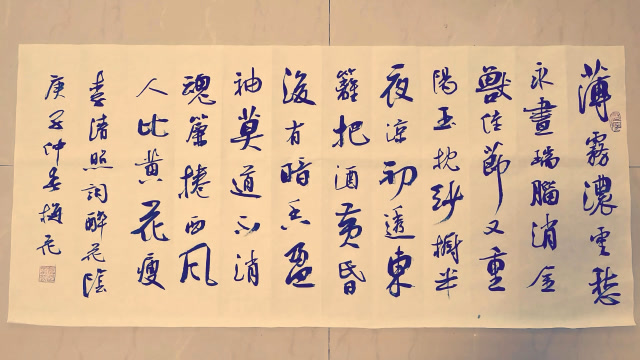 薄霧濃雲愁
永晝瑞腦消金
獸佳節又重
陽玉枕紗櫥半
夜涼初透東
籬把酒黃昏
後有暗香盈
袖莫道不消
魂簾捲西風
人比黃花瘦
李清照詞醉花陰
庚子仲梅